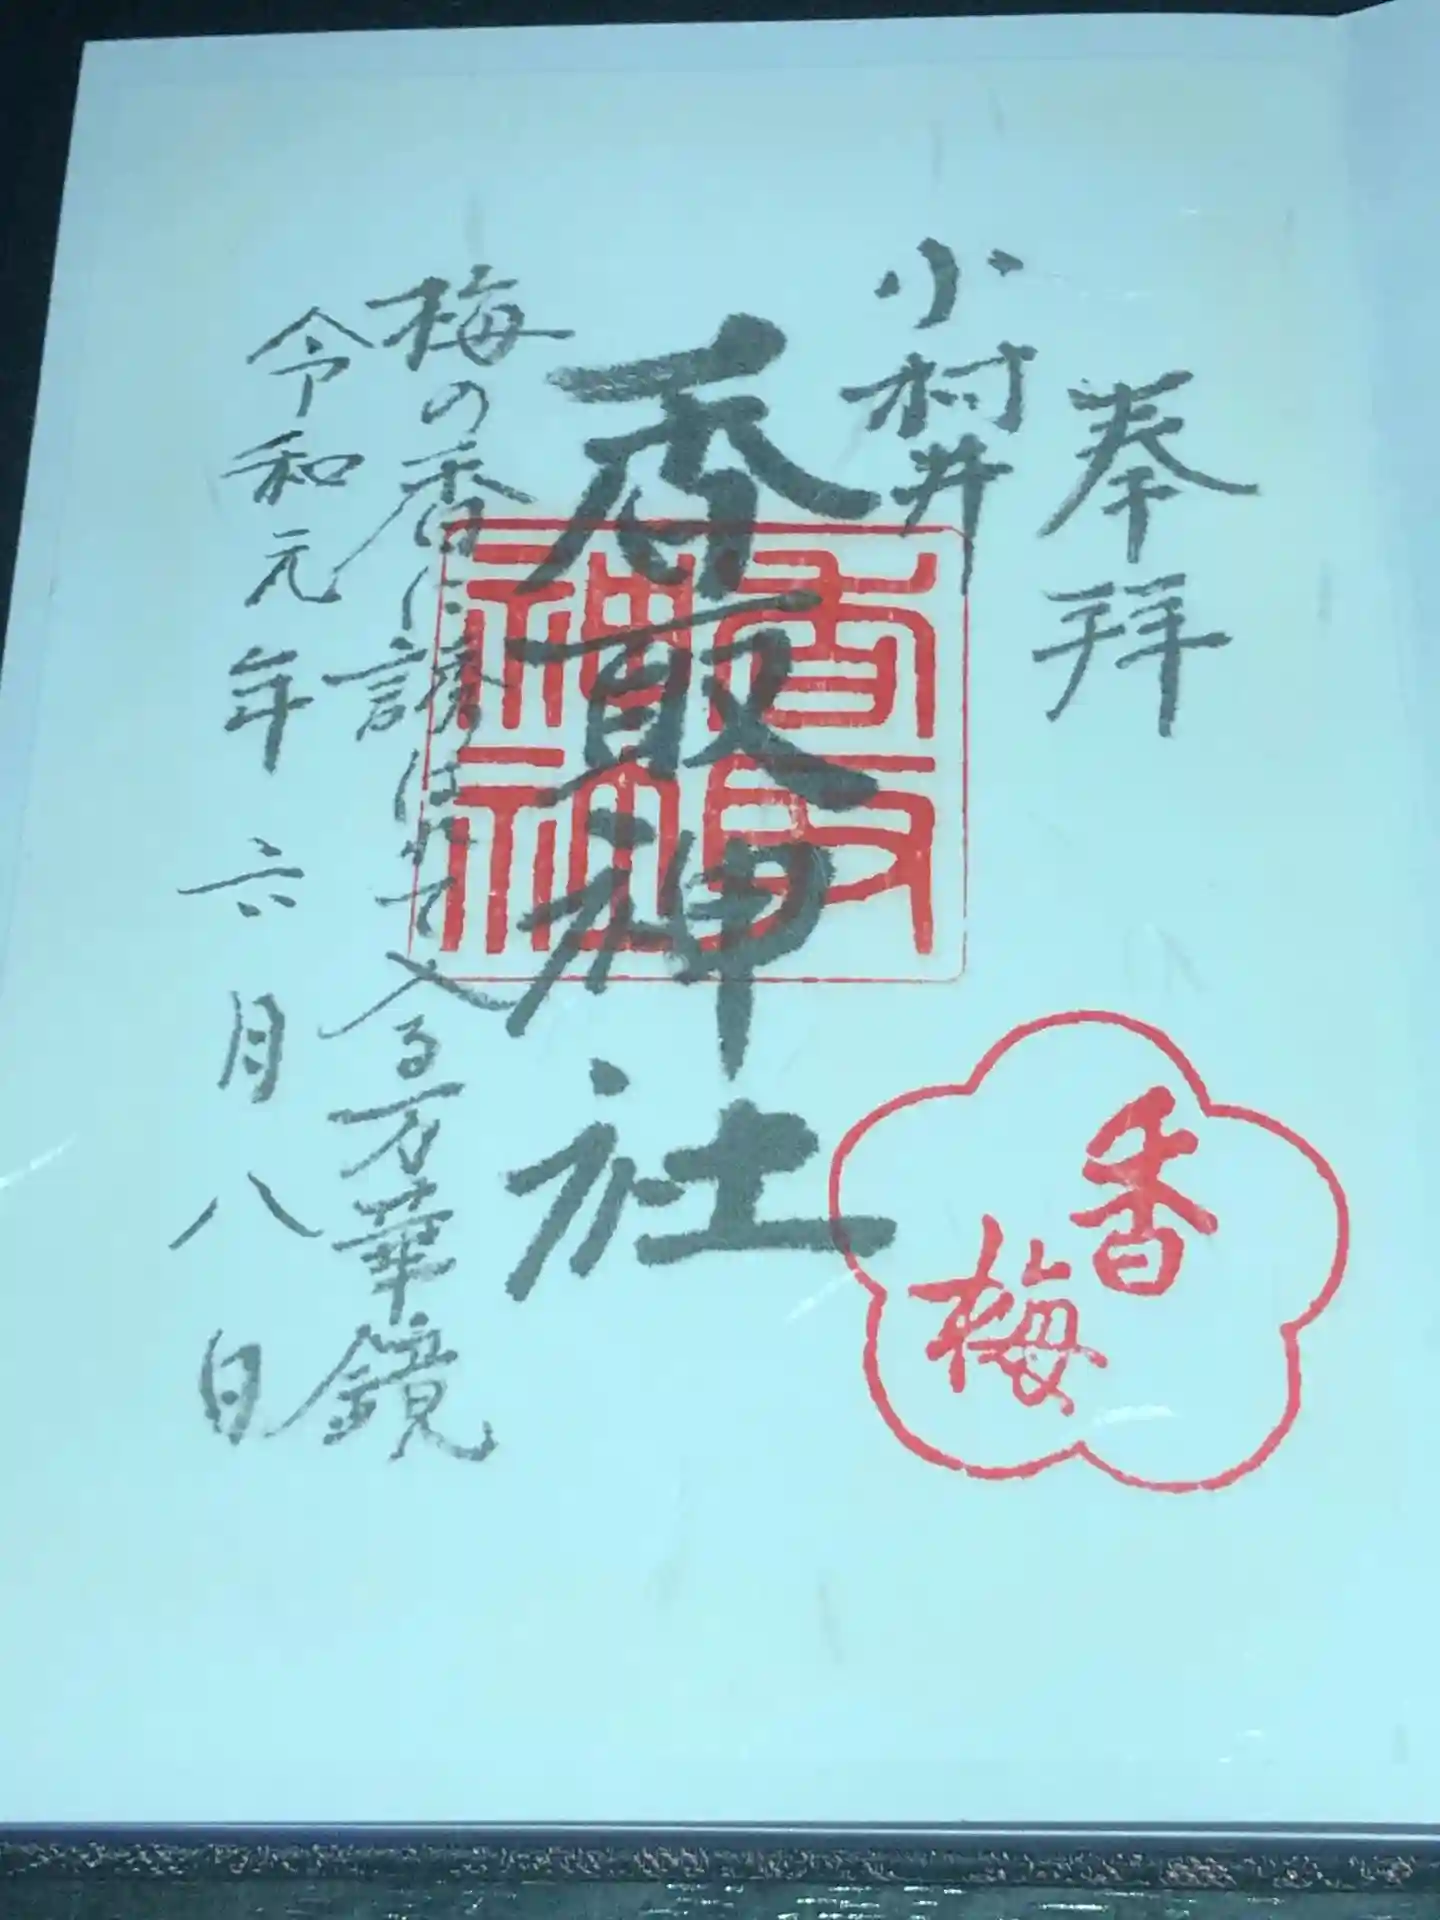 奉拝
小村井
香取神社
香取神社
梅の香に誘はれて入る万華鏡
令和元年六月八日
香梅